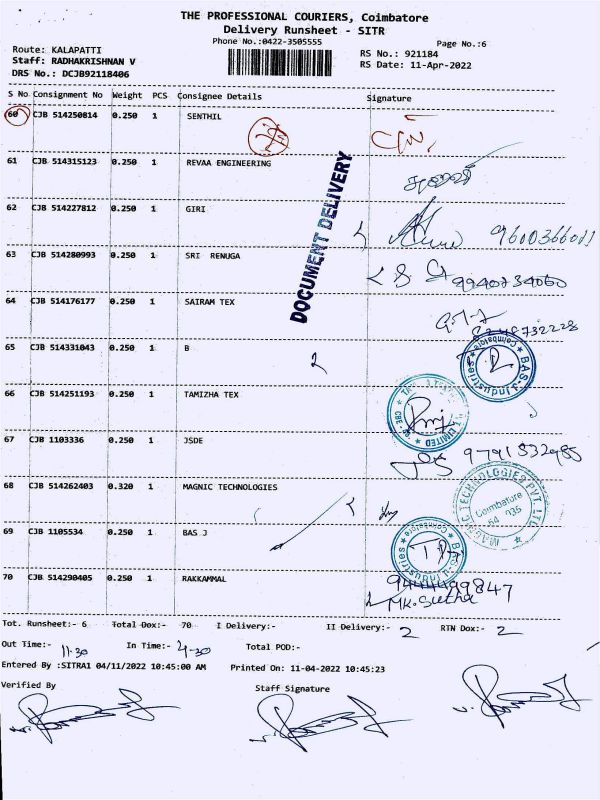 THE PROFESSIONAL COURIERS, Coimbatore
Delivery Runsheet - SITR
Phone No.:0422-3505555
Page No.:6
Route: KALAPATTI
Staff: RADHAKRISHNAN V
DRS No.: DCJB92118406
RS No.: 921184
RS Date: 11-Apr-2022
S No Consignment No Weight PCS Consignee Details Signature
60 CJB 514250814 0.250 1 SENTHIL
61 CJB 514315123 0.250 1 REVAA ENGINEERING
DOCUMENT DELIVERY
62 CJB 514227812 0.250 1 GIRI
63 CJB 514280993 0.250 1 SRI RENUGA 9940734060
64 CJB 514176177 0.250 1 SAIRAM TEX
65 CJB 514331043 0.250 1 B
BAS-J Industries Coimbatore
66 CJB 514251193 0.250 1 TAMIZHA TEX
67 CJB 1103336 0.250 1 JSDE 9791832985
68 CJB 514262403 0.320 1 MAGNIC TECHNOLOGIES
MAGNIC TECHNOLOGIES PVT LTD Coimbatore
69 CJB 1105534 0.250 1 BAS J
BAS-J Industries Coimbatore
70 CJB 514290405 0.250 1 RAKKAMMAL
9444499847
MK. Sutha
Tot. Runsheet:- 6 Total Dox:- 70 I Delivery:- II Delivery:- 2 RTN Dox:- 2
Out Time:- 11.30 In Time:- 4.30 Total POD:-
Entered By :SITRA1 04/11/2022 10:45:00 AM Printed On: 11-04-2022 10:45:23
Verified By Staff Signature